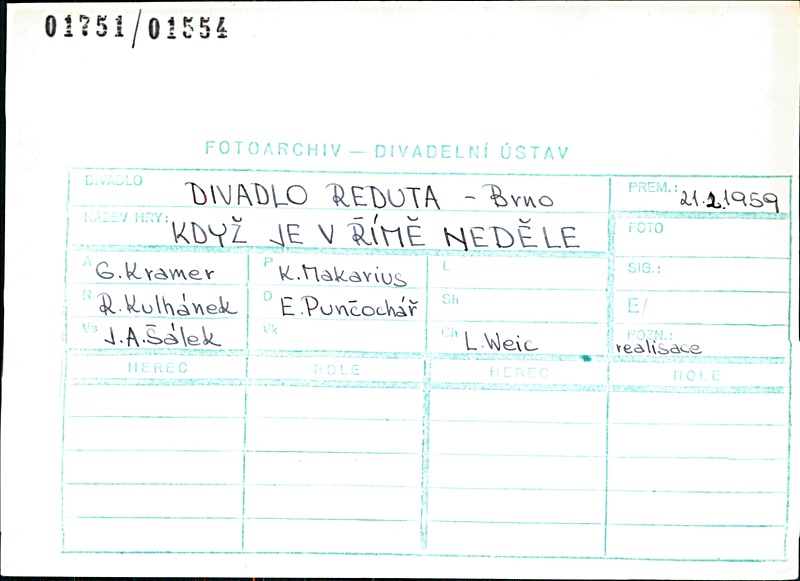 01751/01554
FOTOARCHIV — DIVADELNÍ ÚSTAV
DIVADLO DIVADLO REDUTA - Brno PREM.: 21.2.1959
NÁZEV HRY: KDYŽ JE V ŘÍMĚ NEDĚLE FOTO
A G. Kramer P K. Makarius L SIG.:
R R. Kulhánek D E. Punčochář Sh E/
Vs J.A. Šálek Vk Ch L. Weic POZN.: realisace
HEREC ROLE HEREC ROLE